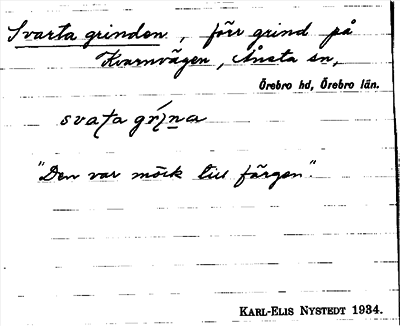 Svarta grinden, förr grind på
Kvarnvägen, Ånsta sn,
Örebro hd, Örebro län.
svaʈa grína
"Den var mörk till färgen."
KARL-ELIS NYSTEDT 1934.